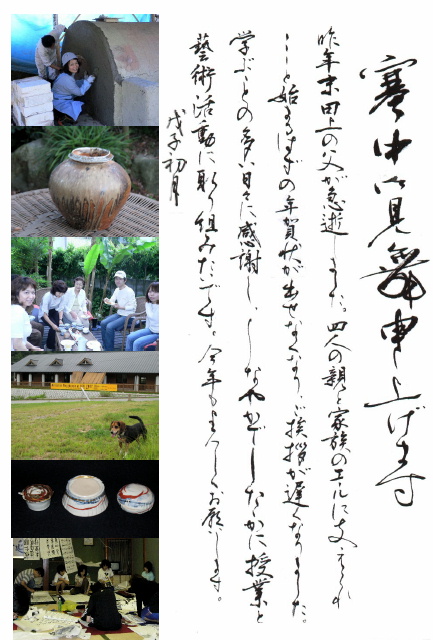 寒中お見舞申し上げます
昨年末田上の父が急逝しました。四人の親と家族のエールに支えられ
こと始まるはずの年賀状が出せなくなり、ご挨拶が遅くなりました。
学ぶことの多い日々に感謝し、しなやかでしたたかに授業と
藝術活動に取り組みたいです。今年もよろしくお願いします。
戊子初月